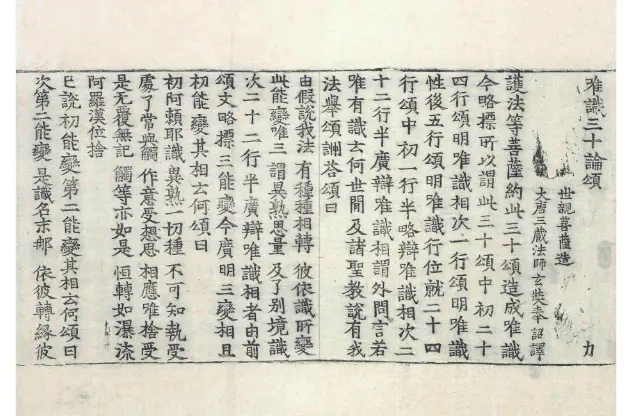 唯識三十論頌 力
世親菩薩造
大唐三藏法師玄奘奉 詔譯
護法等菩薩約此三十頌造成唯識
今略標所以謂此三十頌中初二十
四行頌明唯識相次一行頌明唯識
性後五行頌明唯識行位就二十四
行頌中初一行半略辯唯識相次二
十二行半廣辯唯識相謂外問言若
唯有識云何世閒及諸聖教說有我
法舉頌詶荅頌曰
由假說我法 有種種相轉 彼依識所變
此能變唯三 謂異熟思量 及了別境識
次二十二行半廣辯唯識相者由前
頌文略標三能變今廣明三變相且
初能變其相云何頌曰
初阿頼耶識 異熟一切種 不可知執受
處了常與觸 作意受想思 相應唯捨受
是无覆無記 觸等亦如是 恒轉如瀑流
阿羅漢位捨
已說初能變第二能變其相云何頌曰
次第二能變 是識名末那 依彼轉緣彼